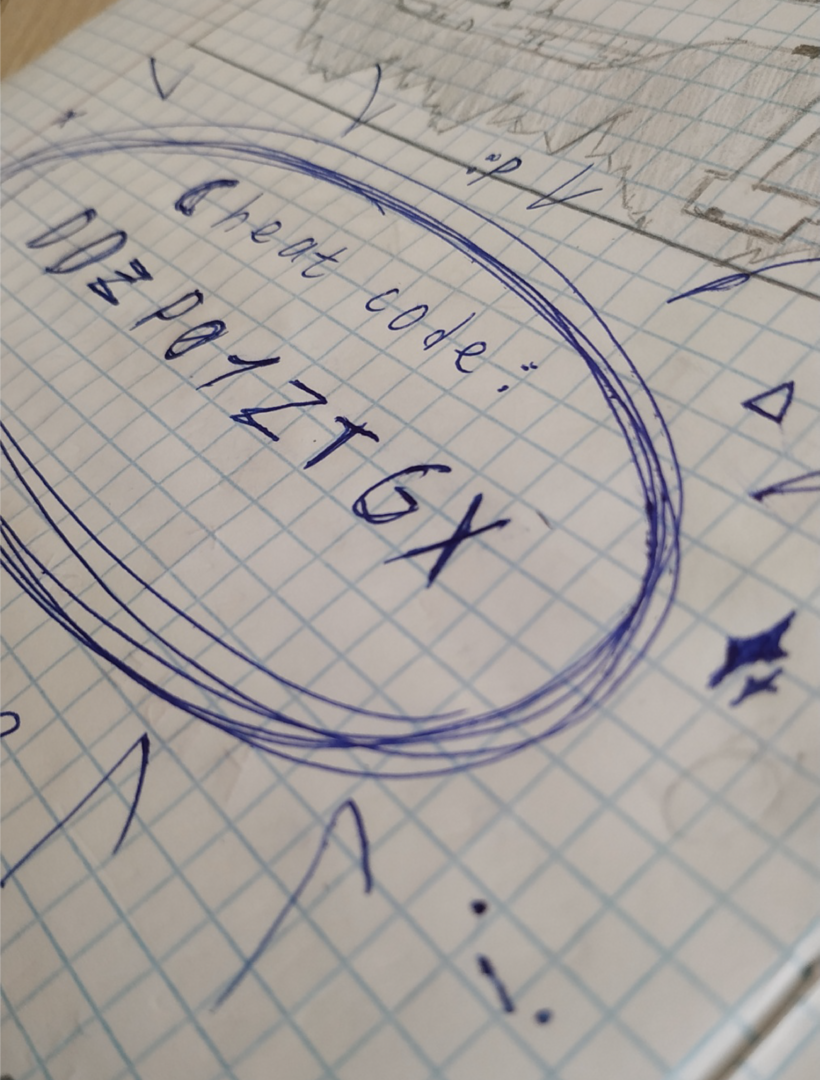 Cheat code:
DDZPO1ZTGX
:P